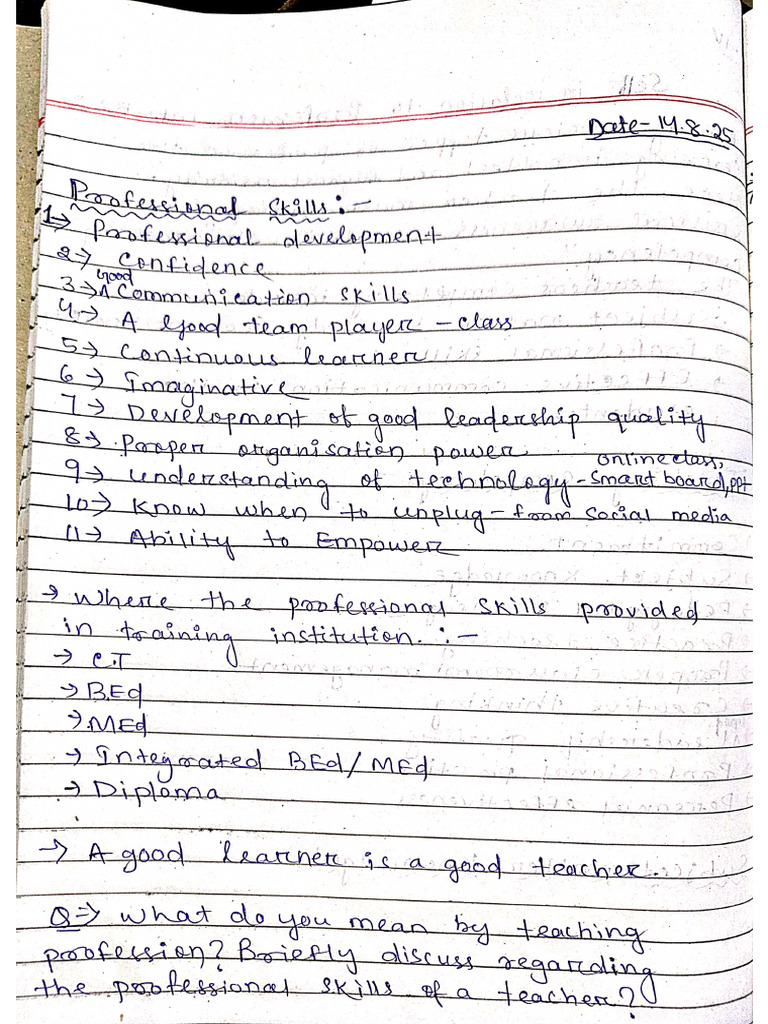 Date-14.8.25
Professional Skills:-
1→ Professional development
2→ Confidence
3→ Good Communication skills
4→ A Good team player - class
5→ Continuous learner
6→ Imaginative
7→ Development of good leadership quality
8→ Proper organisation power
9→ Understanding of technology - online class, Smart board, ppt
10→ Know when to unplug - from social media
11→ Ability to Empower
→ Where the professional skills provided
in training institution. :-
→ C.T
→ B.Ed
→ MEd
→ Integrated BEd/MEd
→ Diploma
→ A good learner is a good teacher.
Q⇒ What do you mean by teaching
profession? Briefly discuss regarding
the professional skills of a teacher?